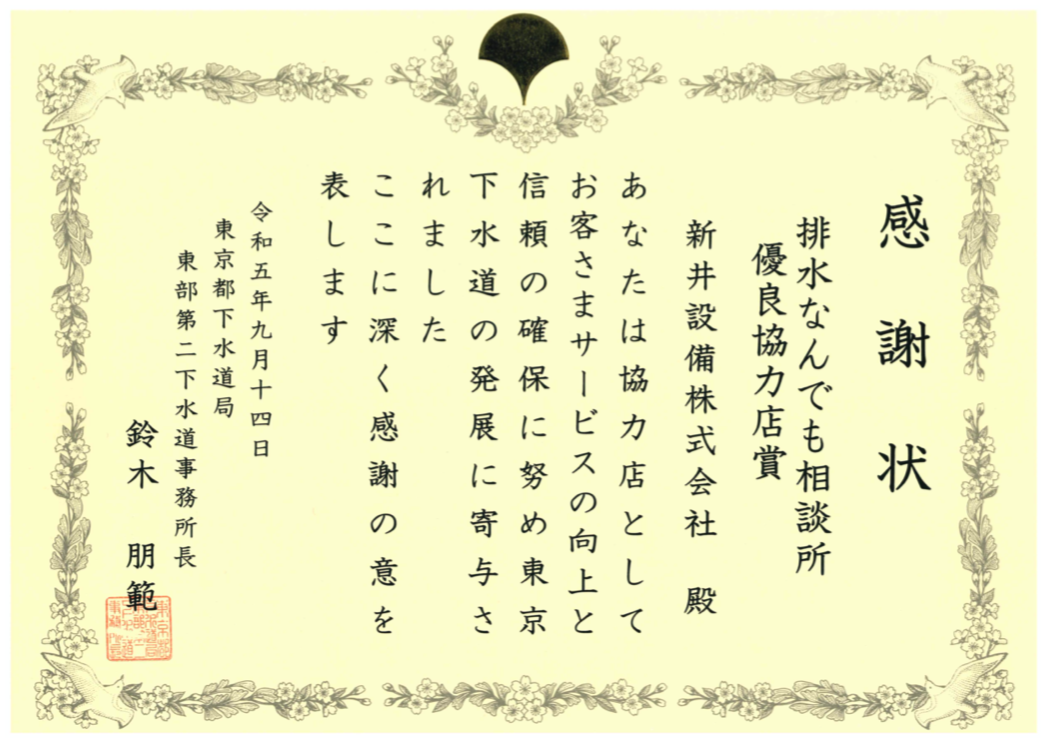 感謝状
排水なんでも相談所
優良協力店賞
新井設備株式会社 殿
あなたは協力店として
お客さまサービスの向上と
信頼の確保に努め東京
下水道の発展に寄与さ
れました
ここに深く感謝の意を
表します
令和五年九月十四日
東京都下水道局
東部第二下水道事務所長
鈴木 朋範